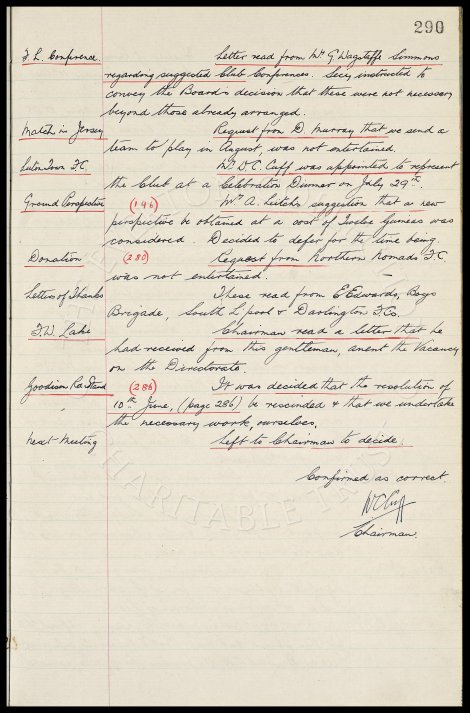 290
F. L. Conference. Letter read from Mr G Wagstaffe Simmons
regarding suggested Club Conferences. Secy instructed to
convey the Boards decision that these were not necessary
beyond those already arranged.
Match in Jersey Request from D. Murray that we send a
team to play in August, was not entertained.
Luton Town F.C. Mr D.C. Cuff was appointed to represent
the Club at a Celebration Dinner on July 29th.
Ground Perspective (196) Mr A. suggestion that a new
perspective be obtained at a cost of Twelve Guineas was
considered. Decided to defer for the time being.
Donation (280) Request from Northern Nomads F.C.
was not entertained.
Letters of Thanks These read from E Edwards, Boys
Brigade, South L'pool & Darlington F.Cs.
F.W. Lake Chairman read a letter that he
had received from this gentleman, anent the Vacancy
on the Directorate.
Goodison Rd Stand (286) It was decided that the resolution of
10th June, (page 286) be rescinded & that we undertake
the necessary work, ourselves.
Next Meeting Left to Chairman to decide.
Confirmed as correct
W C Cuff
Chairman.
CHARITABLE TRUST